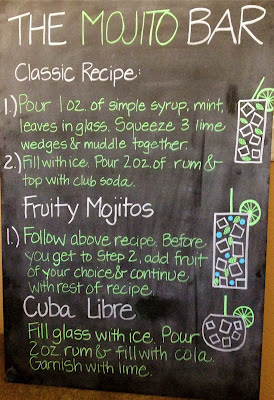 THE MOJITO BAR
Classic Recipe:
1.) Pour 1 oz. of simple syrup, mint
leaves in glass. Squeeze 3 lime
wedges & muddle together.
2.) Fill with ice. Pour 2 oz. of rum &
top with club soda.
Fruity Mojitos
1.) Follow above recipe. Before
you get to Step 2, add fruit
of your choice & continue
with rest of recipe.
Cuba Libre
Fill glass with ice. Pour
2 oz rum & fill with cola.
Garnish with lime.